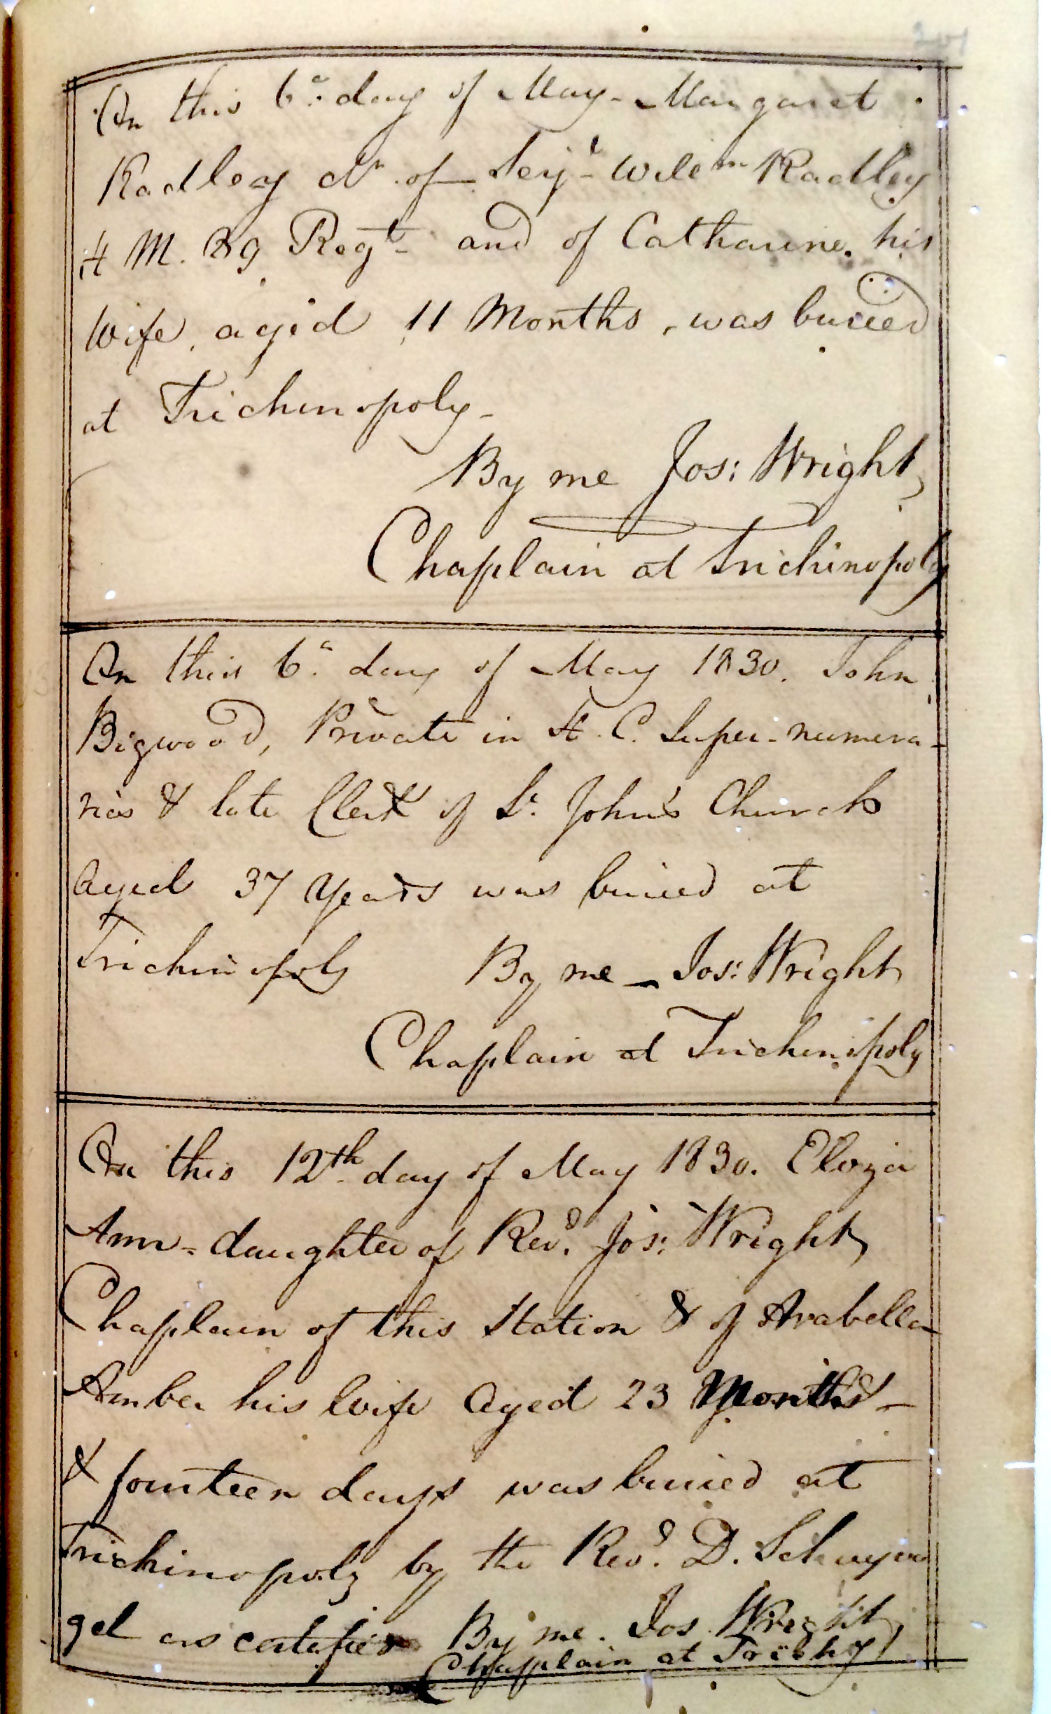 On this 6th day of May - Margaret
Radley dr. of Serjt. Willm Radley
H M. 89 Regt. and of Catharine his
Wife, aged 11 Months, was buried
at Trichinopoly -
By me Jos: Wright,
Chaplain at Trichinopoly
On this 6th day of May 1830. John
Bigwood, Private in H. C. Super-numera-
ries & late Clerk of St. John's Church
aged 37 Years was buried at
Trichinopoly By me - Jos: Wright
Chaplain at Trichinopoly
On this 12th day of May 1830. Eloiza
Ann - daughter of Revd. Jos: Wright
Chaplain of this Station & of Arabella
Amber his Wife aged 23 Months -
& fourteen days was buried at
Trichinopoly by the Revd. D.
gel as certifies By me. Jos. Wright,
Chaplain at Trichy